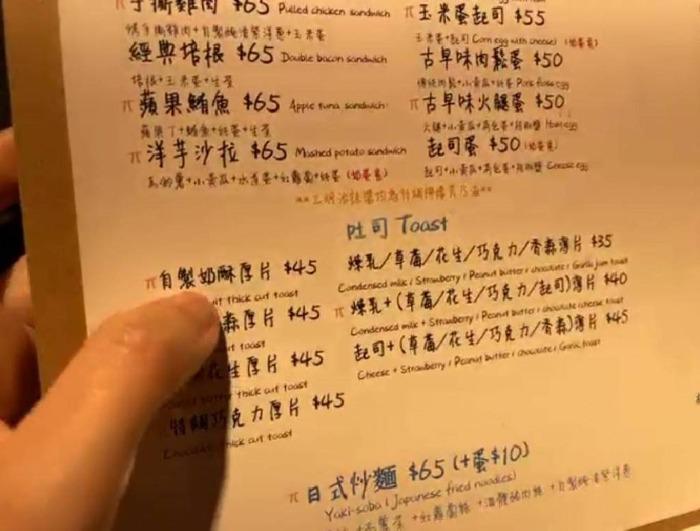 手撕雞肉 $65 Pulled chicken sandwich
經典培根 $65 Double bacon sandwich
培根+玉米蛋+生菜
蘋果鮪魚 $65 Apple tuna sandwich
蘋果丁+鮪魚+
洋芋沙拉 $65 Mashed potato sandwich
馬鈴薯+小黃瓜+水煮蛋+紅蘿蔔+
玉米蛋起司 $55
玉米蛋+起司 Corn egg with cheese
古早味肉鬆蛋 $50
古早味火腿蛋 $50
Ham egg
起司蛋 $50
Cheese egg
吐司 Toast
自製奶酥厚片 $45
thick cut toast
厚片 $45
toast
花生厚片 $45
thick cut toast
特調巧克力厚片 $45
Chocolate thick cut toast
煉乳/草莓/花生/巧克力/香蒜薄片 $35
Condensed milk / Strawberry / Peanut butter / chocolate / Garlic jam toast
煉乳+(草莓/花生/巧克力/起司)薄片 $40
Condensed milk + Strawberry / Peanut butter / chocolate / cheese toast
起司+(草莓/花生/巧克力/香蒜)薄片 $45
Cheese + Strawberry / Peanut butter / chocolate / Garlic toast
日式炒麵 $65 (+蛋$10)
Yaki-soba (Japanese fried noodles)